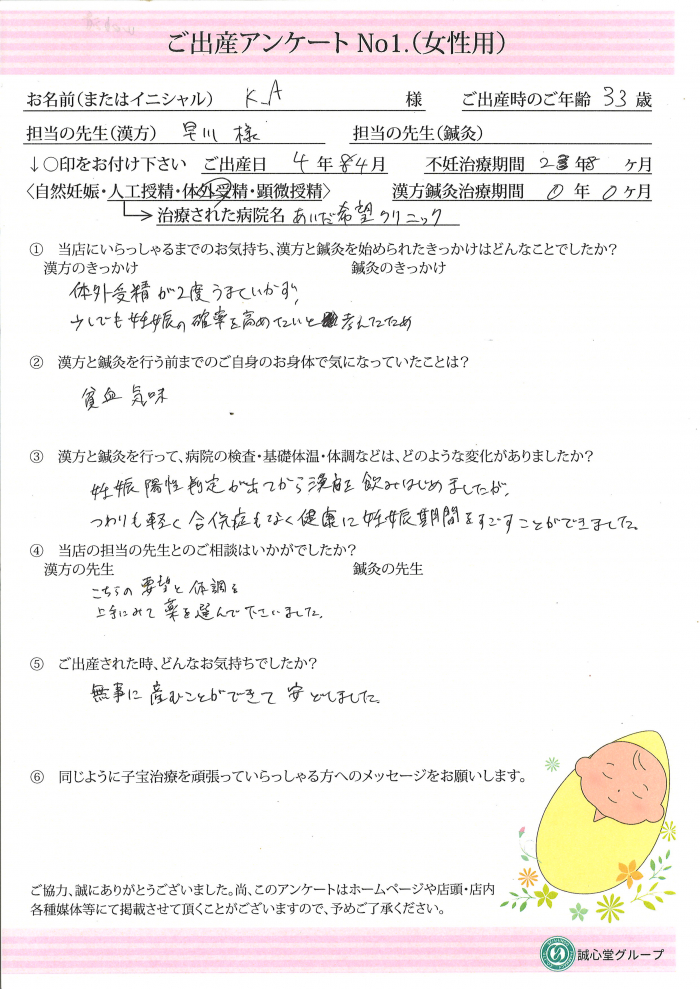 ご出産アンケート No1.(女性用)
お名前(またはイニシャル) K.A 様 ご出産時のご年齢 33 歳
担当の先生(漢方) 早川 様 担当の先生(鍼灸)
↓○印をお付け下さい ご出産日 4 年 4 月 不妊治療期間 2 年 8 ヶ月
〈自然妊娠・人工授精・体外受精・顕微授精〉 漢方鍼灸治療期間 0 年 0 ヶ月
→治療された病院名 あいだ希望クリニック
① 当店にいらっしゃるまでのお気持ち、漢方と鍼灸を始められたきっかけはどんなことでしたか?
漢方のきっかけ 鍼灸のきっかけ
体外受精が2度うまくいかず、
少しでも妊娠の確率を高めたいと考えたため
② 漢方と鍼灸を行う前までのご自身のお身体で気になっていたことは?
貧血気味
③ 漢方と鍼灸を行って、病院の検査・基礎体温・体調などは、どのような変化がありましたか?
妊娠陽性判定が出てから漢方を飲みはじめましたが、
つわりも軽く合併症もなく健康に妊娠期間をすごすことができました。
④ 当店の担当の先生とのご相談はいかがでしたか?
漢方の先生 鍼灸の先生
こちらの要望と体調を
上手にみて薬を選んで下さいました。
⑤ ご出産された時、どんなお気持ちでしたか?
無事に産むことができて安どしました。
⑥ 同じように子宝治療を頑張っていらっしゃる方へのメッセージをお願いします。
ご協力、誠にありがとうございました。尚、このアンケートはホームページや店頭・店内
各種媒体等にて掲載させて頂くことがございますので、予めご了承ください。
誠心堂グループ